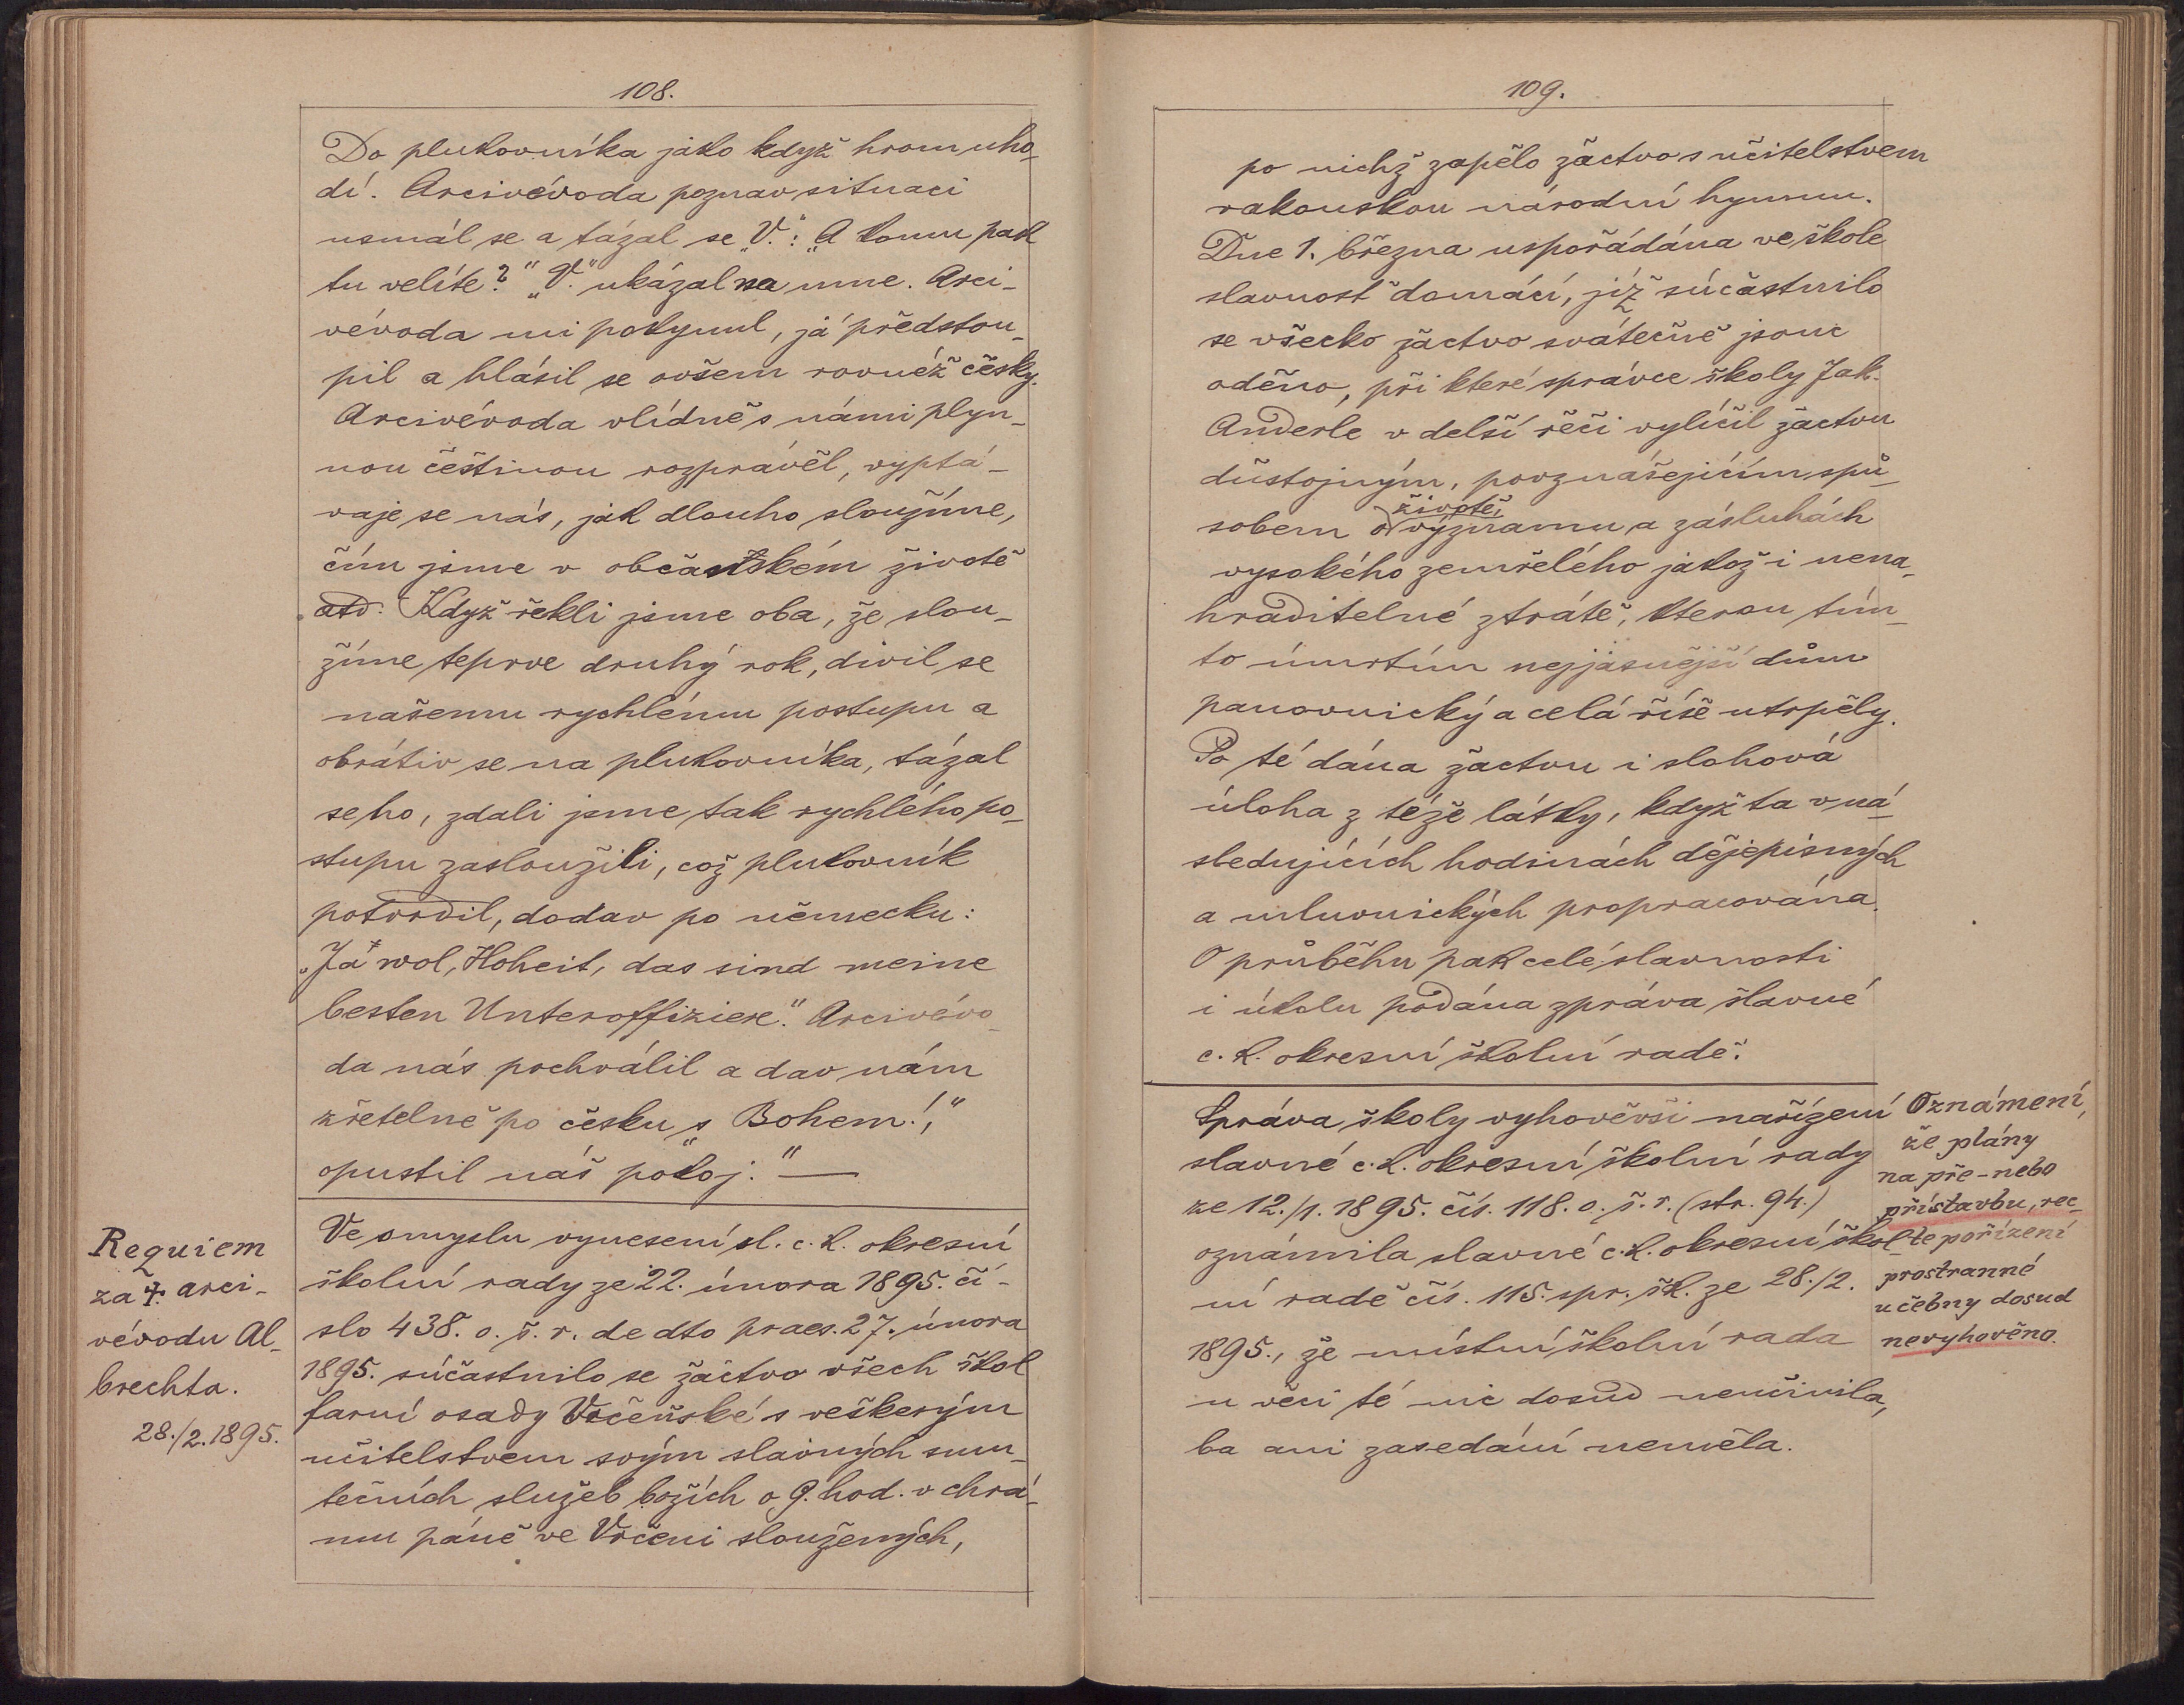 108.
Do plukovníka jako když hrom uho-
dí. Arcivévoda poznav situaci
usmál se a tázal se „V.“: „A komu pak
tu velíte?“ „V.“ ukázal na mne. Arci-
vévoda mi pokynul, já předstou-
pil a hlásil se ovšem rovněž česky.
Arcivévoda vlídně s námi plyn-
nou češtinou rozprávěl, vyptá-
vaje se nás, jak dlouho sloužíme,
čím jsme v občanském životě
atd. Když řekli jsme oba, že slou-
žíme teprve druhý rok, divil se
našemu rychlému postupu a
obrátiv se na plukovníka, tázal
se ho, zdali jsme tak rychlého po-
stupu zasloužili, což plukovník
potvrdil, dodav po německu:
„Ja wol, Hoheit, das sind meine
besten Unteroffiziere.“ Arcivévo-
da nás pochválil a dav nám
zřetelně po česku „s Bohem!“,
opustil náš pokoj.“ —
Requiem
za †. arci-
vévodu Al-
brechta.
28./2. 1895.
Ve smyslu vynesení sl. c. k. okresní
školní rady ze 22. února 1895. čí-
slo 438. o. š. r. de dto praes. 27. února
1895. súčastnilo se žáctvo všech škol
farní osady Vrčeňské s veškerým
učitelstvem svým slavných smu-
tečních služeb božích o 9. hod. v chrá-
mu páně ve Vrčeni sloužených,
109.
po nichž zapělo žáctvo s učitelstvem
rakouskou národní hymnu.
Dne 1. března uspořádána ve škole
slavnost domácí, jíž súčastnilo
se všecko žáctvo svátečně jsouc
oděno, při které správce školy Jak.
Anderle v delší řeči vylíčil žáctvu
důstojným, povznášejícím spů-
životě,
sobem o významu a zásluhách
vysokého zemřelého jakož i nena-
hraditelné ztrátě, kterou tím-
to úmrtím nejjasnější dům
panovnický a celá říše utrpěly.
Po té dána žactvu i slohová
úloha z téže látky, když ta v ná-
sledujících hodinách dějepisných
a mluvnických propracována.
O průběhu pak celé slavnosti
i úkolu podána zpráva slavné
c. k. okresní školní radě.
Správa školy vyhověvši nařízení
slavné c. k. okresní školní rady
ze 12./1. 1895. čís. 118. o. š. r. (str. 94.)
oznámila slavné c. k. okresní škol-
ní radě čís. 115. spr. šk. ze 28./2.
1895., že místní školní rada
u věci té nic dosud neučinila,
ba ani zasedání neměla.
Oznámení,
že plány
na pře- nebo
přístavbu, rec-
te pořízení
prostranné
učebny dosud
nevyhověno.